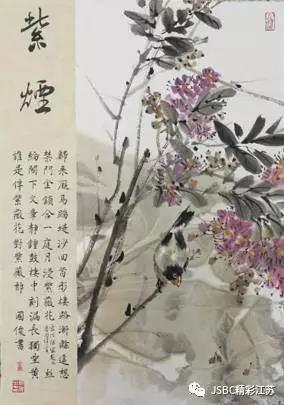 紫煙
歸來厩馬踏堤沙回首彤樓路漸賒遙想
禁門金鎖合一庭月浸紫薇花
絲
綸閣下文章靜鐘鼓樓中刻漏長獨坐黃
誰是伴紫薇花對紫薇郎 國俊書
JSBC精彩江苏